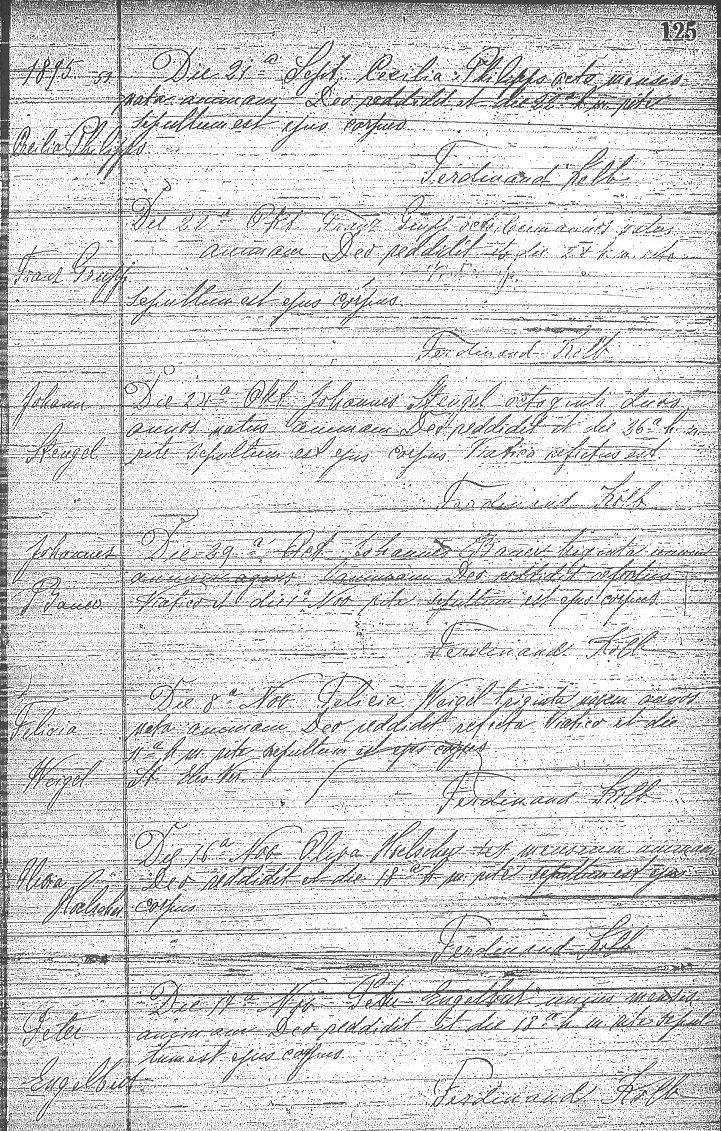 125
1895
Die 21ª Sept. Cecilia Philipps octo menses
nata animam Deo reddidit et die 22ª h. m. rite
sepultum est ejus corpus
Cecilia Philipps
Ferdinand Kolb
Die 22ª Okt Franz octo natus
animam Deo reddidit et die 24 h. m. rite
Franz
sepultum est ejus corpus.
Ferdinand Kolb
Johann
Stengel
Die 24ª Okt Johannes Stengel octoginta duos
annos natus animam Deo reddidit et die 26ª h. m.
rite sepultum est ejus corpus Viatico refectus est.
Ferdinand Kolb
Johannes
Bauer
Die 29ª Oct Johannes Bauer triginta unum
annum agens animam Deo reddidit refectus
Viatico et die 1ª Nov rite sepultum est ejus corpus
Ferdinand Kolb
Felicia
Weigel
Die 8ª Nov. Felicia Weigel triginta novem annos
nata animam Deo reddidit refecta Viatico et die
11ª h. m. rite sepultum est ejus corpus
Ferdinand Kolb
Die 16ª Nov Hoelscher mensium animam
Deo reddidit et die 18ª h. m. rite sepultum est ejus
corpus
Hoelscher
Ferdinand Kolb
Peter
Engelbert
Die 17ª Nov. Peter Engelbert mensis
animam Deo reddidit et die 18ª h. m. rite sepul-
tum est ejus corpus.
Ferdinand Kolb